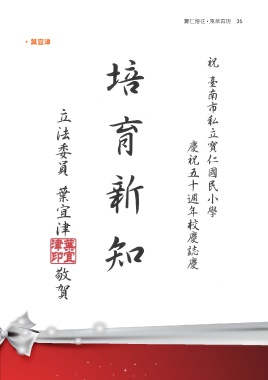 寶仁榕住•風華再現 36
•葉宜津
祝 臺南市私立寶仁國民小學
慶祝五十週年校慶誌慶
培育新知
立法委員 葉宜津 敬賀
葉宜津印